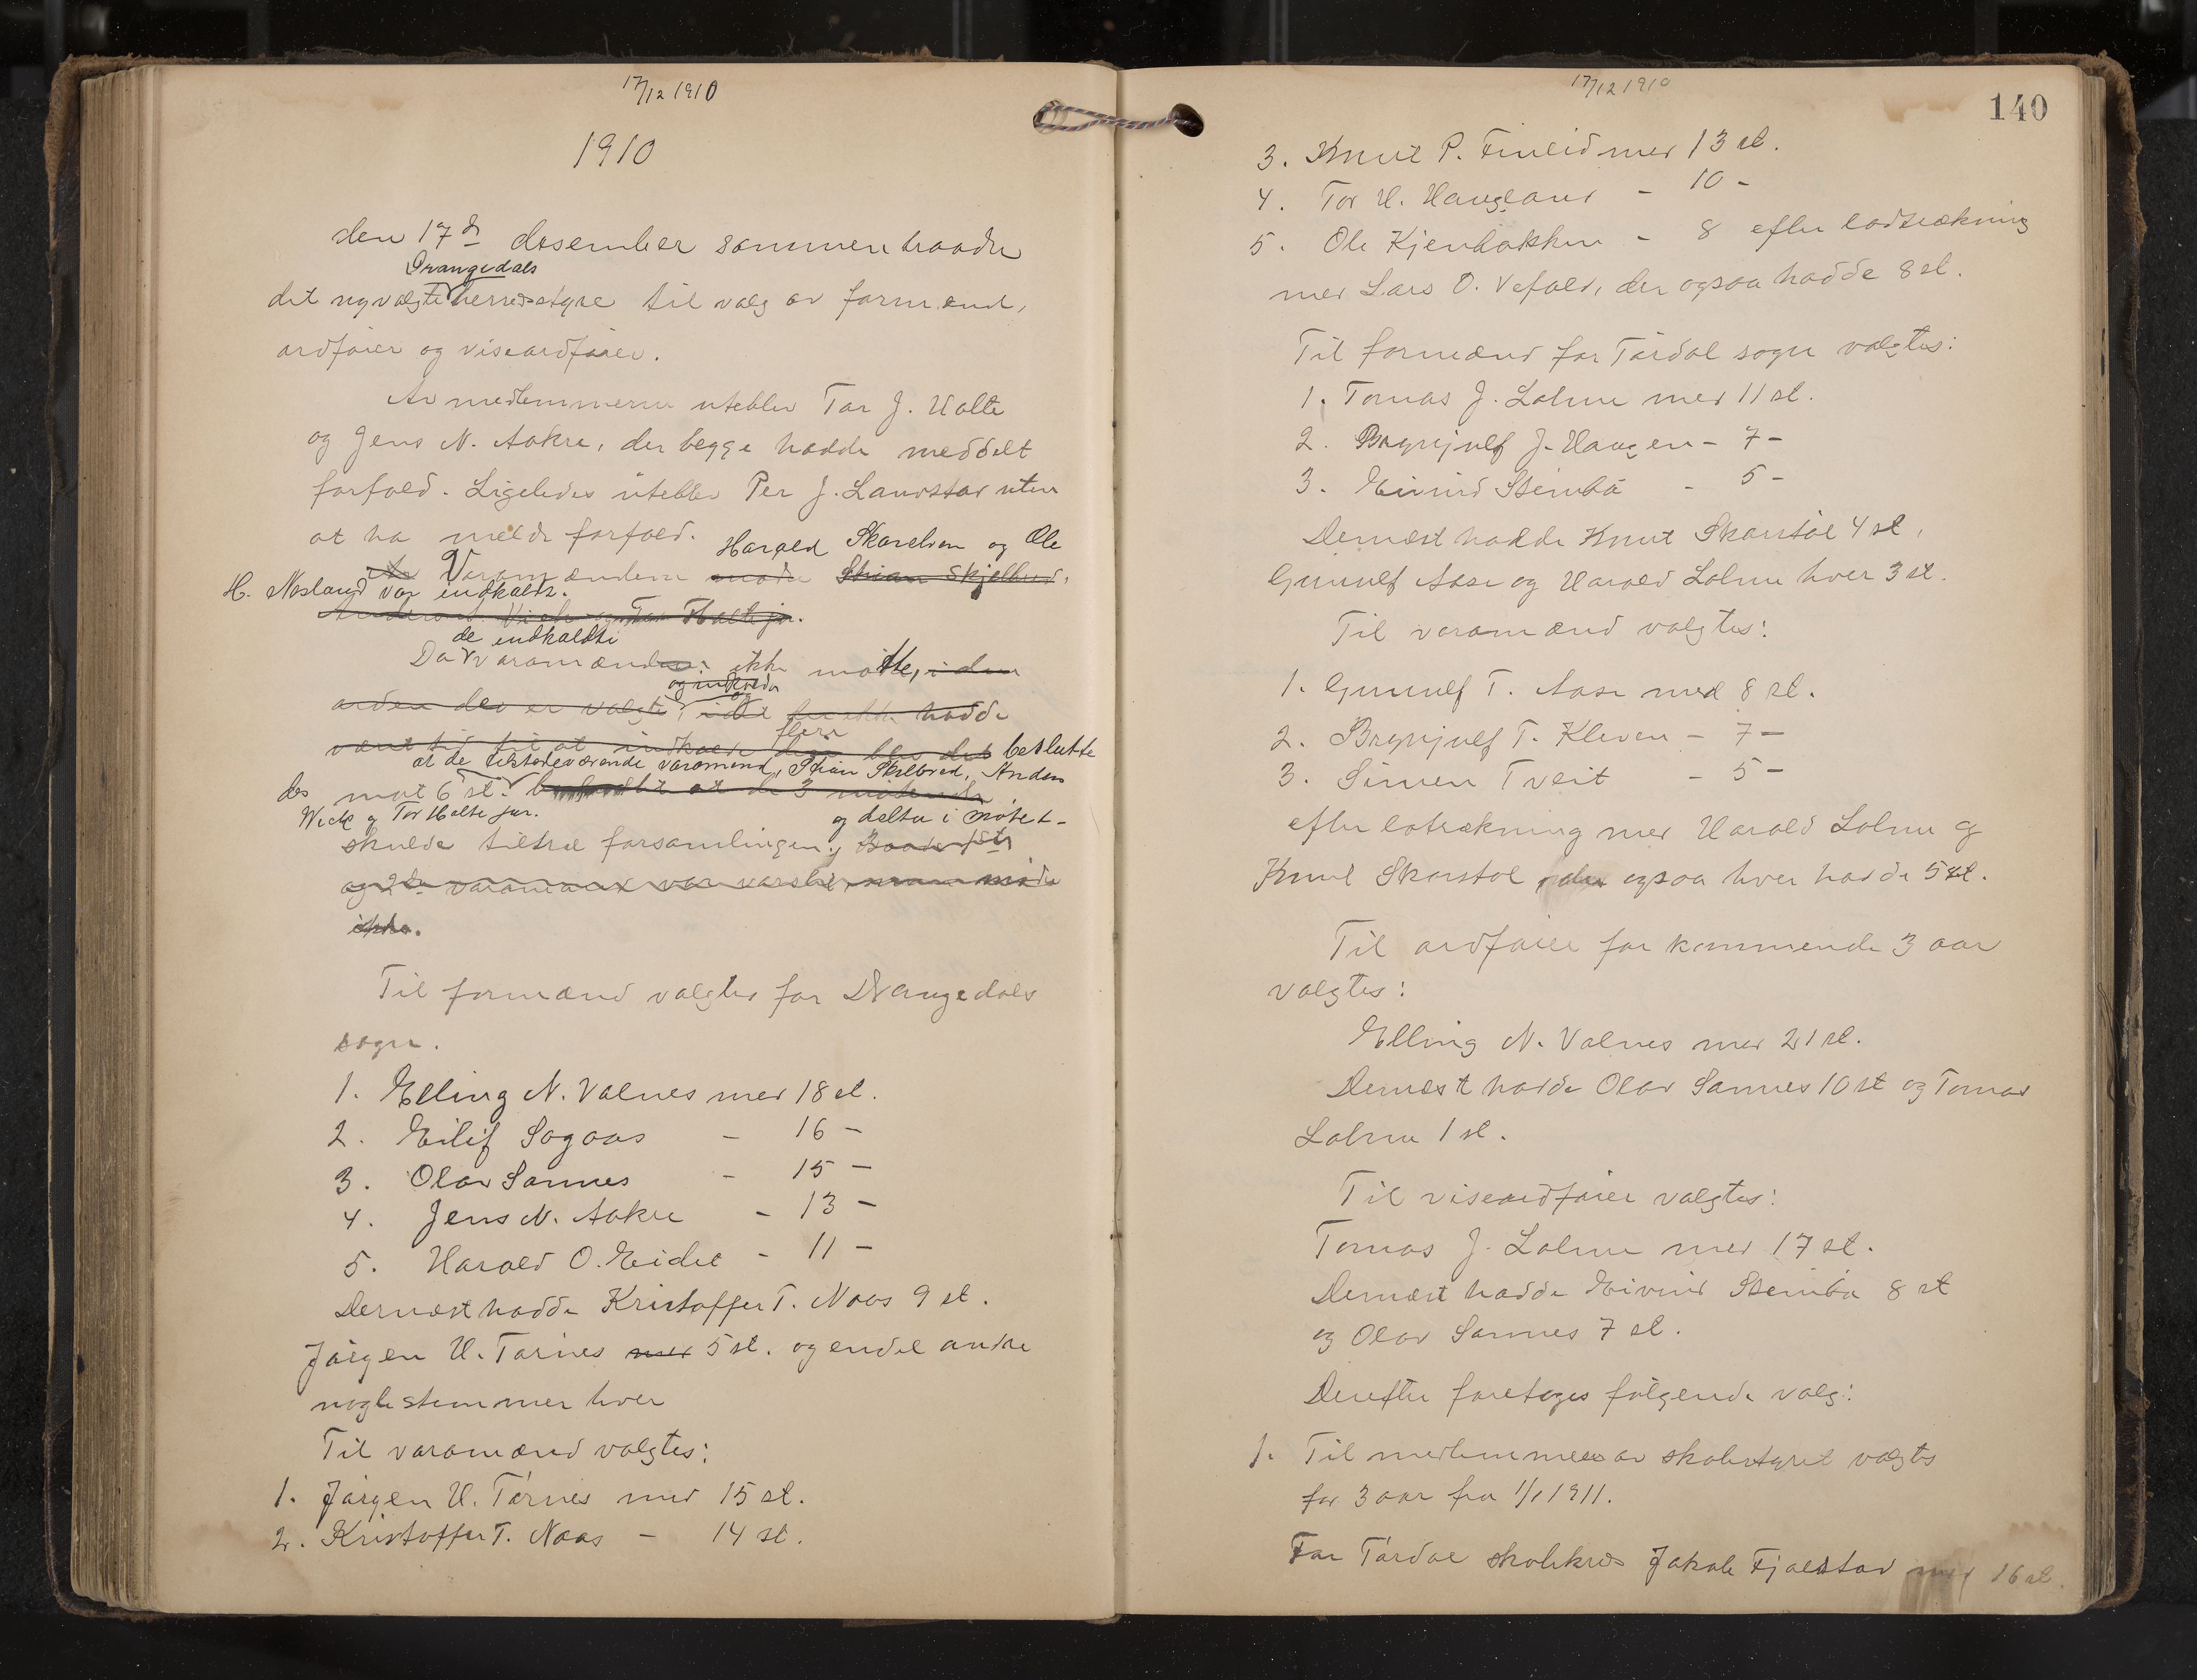 17/12 1910
1910
den 17de desember sammentraadte
Drangedals
det nyvalgte herredsstyre til valg av formænd,
ordfører og viseordfører.
Av medlemmerne uteblev Tor J. Halte
og Jens N. Aakre, der begge hadde meddelt
forfald. Ligeledes uteblev Per J. Laurstad uten
at ha meldt forfald. Harald Skarelven og Ole
Av Varamændene møtte Stian Skjelbred,
H. Nesland var indkaldt.
Anders Wick og Tor Halte jr.
de indkaldte
Da varamændene ikke møtte, i den
og indkaldt
orden der er valgt, idet der ikke hadde
flere
været tid til at indkalde blev det beslutte
at de tilstedeværende varamænd, Stian Skelbred, Anders
des mot 6 st. at de 3 møtende
Wick og Tor Halte jun. og delta i møtet.
skulde tiltræ forsamlingen, Baade 1ste
og 2den varamand var varslet, men møtte
ikke.
Til formænd valgtes for Drangedals
sogn.
1. Elling N. Valnes med 18 st.
2. Eilif Sogaas - 16 -
3. Olav Sannes - 15 -
4. Jens N. Aakre - 13 -
5. Harald O. Eidet - 11 -
Dernæst hadde Kristoffer T. Naas 9 st.
Jørgen H. Tørnes med 5 st. og endel andre
nogle stemmer hver
Til varamænd valgtes:
1. Jørgen H. Tørnes med 15 st.
2. Kristoffer T. Naas - 14 st.
17/12 1910
140
3. Knut P. Finlid med 13 st.
4. Tor H. Haugland - 10 -
5. Ole Kjenbakken - 8 efter lodtrækning
med Lars O. Vefald, der ogsaa hadde 8 st.
Til formænd for Tørdal sogn valgtes:
1. Tomas J. Lolme med 11 st.
2. Brynjulf J. Haugen - 7 -
3. Eivind Stenbø - 5 -
Dernæst hadde Knut Skarstøl 4 st,
Gunnulf Aase og Harald Lolme hver 3 st.
Til varamænd valgtes:
1. Gunnulf T. Aase med 8 st.
2. Brynjulf T. Kleven - 7 -
3. Simen Tveit - 5 -
efter lotrækning med Harald Lolme og
Knut Skarstøl, der ogsaa hver hadde 5 st.
Til ordfører for kommende 3 aar
valgtes:
Elling N. Valnes med 21 st.
Dernæst hadde Olav Sannes 10 st og Tomas
Lolme 1 st.
Til viseordfører valgtes:
Tomas J. Lolme med 17 st.
Dernæst hadde Eivind Stenbø 8 st
og Olav Sannes 7 st.
Derefter foretoges følgende valg:
1. Til medlemmer av skolestyret valgtes
for 3 aar fra 1/1 1911.
For Tørdal skolekreds Jakob Fjalestad med 16 st.